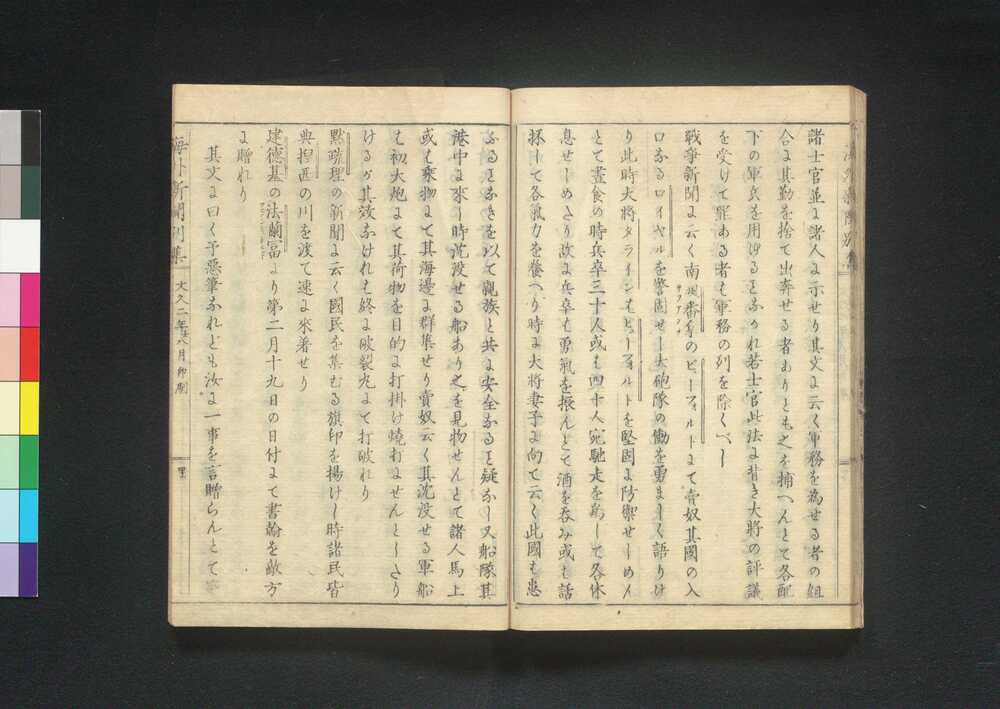 諸士官並に諸人に示せり其文に云く軍務を為せる者の組
合に其勤を捨て出奔せる者ありとも之を捕へんとて各配
下の軍兵を用ゆることなかれ若士官此法に背き大将の評議
を受けて罪ある者も軍務の列を除くべし
戦争新聞に云く南のビーフォルトにて賣奴其國の入
口なるロイヤルを警固せし大砲隊の働を勇ましく語りけ
り此時大将タラインもビーフォルトを堅固に防禦せしめん
とて昼食の時兵卒三十人或も四十人宛馳走を為して各休
息せしめたり故に兵卒も勇氣を振んとて酒を呑み或も話
抔して各氣力を養へり時に大将妻子に向て云く此國も患
なるとなきを以て親族と共に安全なると疑なし又船隊其
港中に来し時沈没せる船あり之を見物せんとて諸人馬上
或も乗物にて其海邊に群集せり賣奴云く其沈没せる軍船
も初大炮にて其荷物を目的に打掛け焼打にせんとしたり
けるが其效なければ終に破裂丸にて打破れり
黙理の新聞に云く國民を集むる旗印を揚けし時諸民皆
典捏匝の川を渡て速に来着せり
建德基の法蘭冨より第二月十九日の日付にて書翰を敵方
に贈れり
其文に曰く予惡筆なれども汝に一事を言贈らんとて
海外新聞別集
文久二年八月印刷